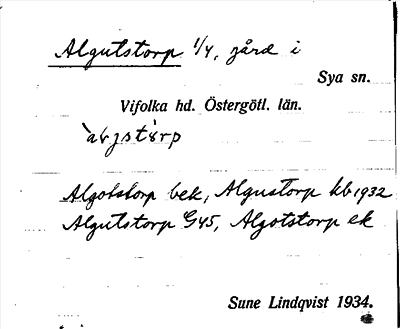 Algutstorp 1/4, gård i
Sya sn.
Vifolka hd. Östergötl. län.
Algotstorp bek, Algustorp kb 1932
Algutstorp G45, Algotstorp ek
Sune Lindqvist 1934.